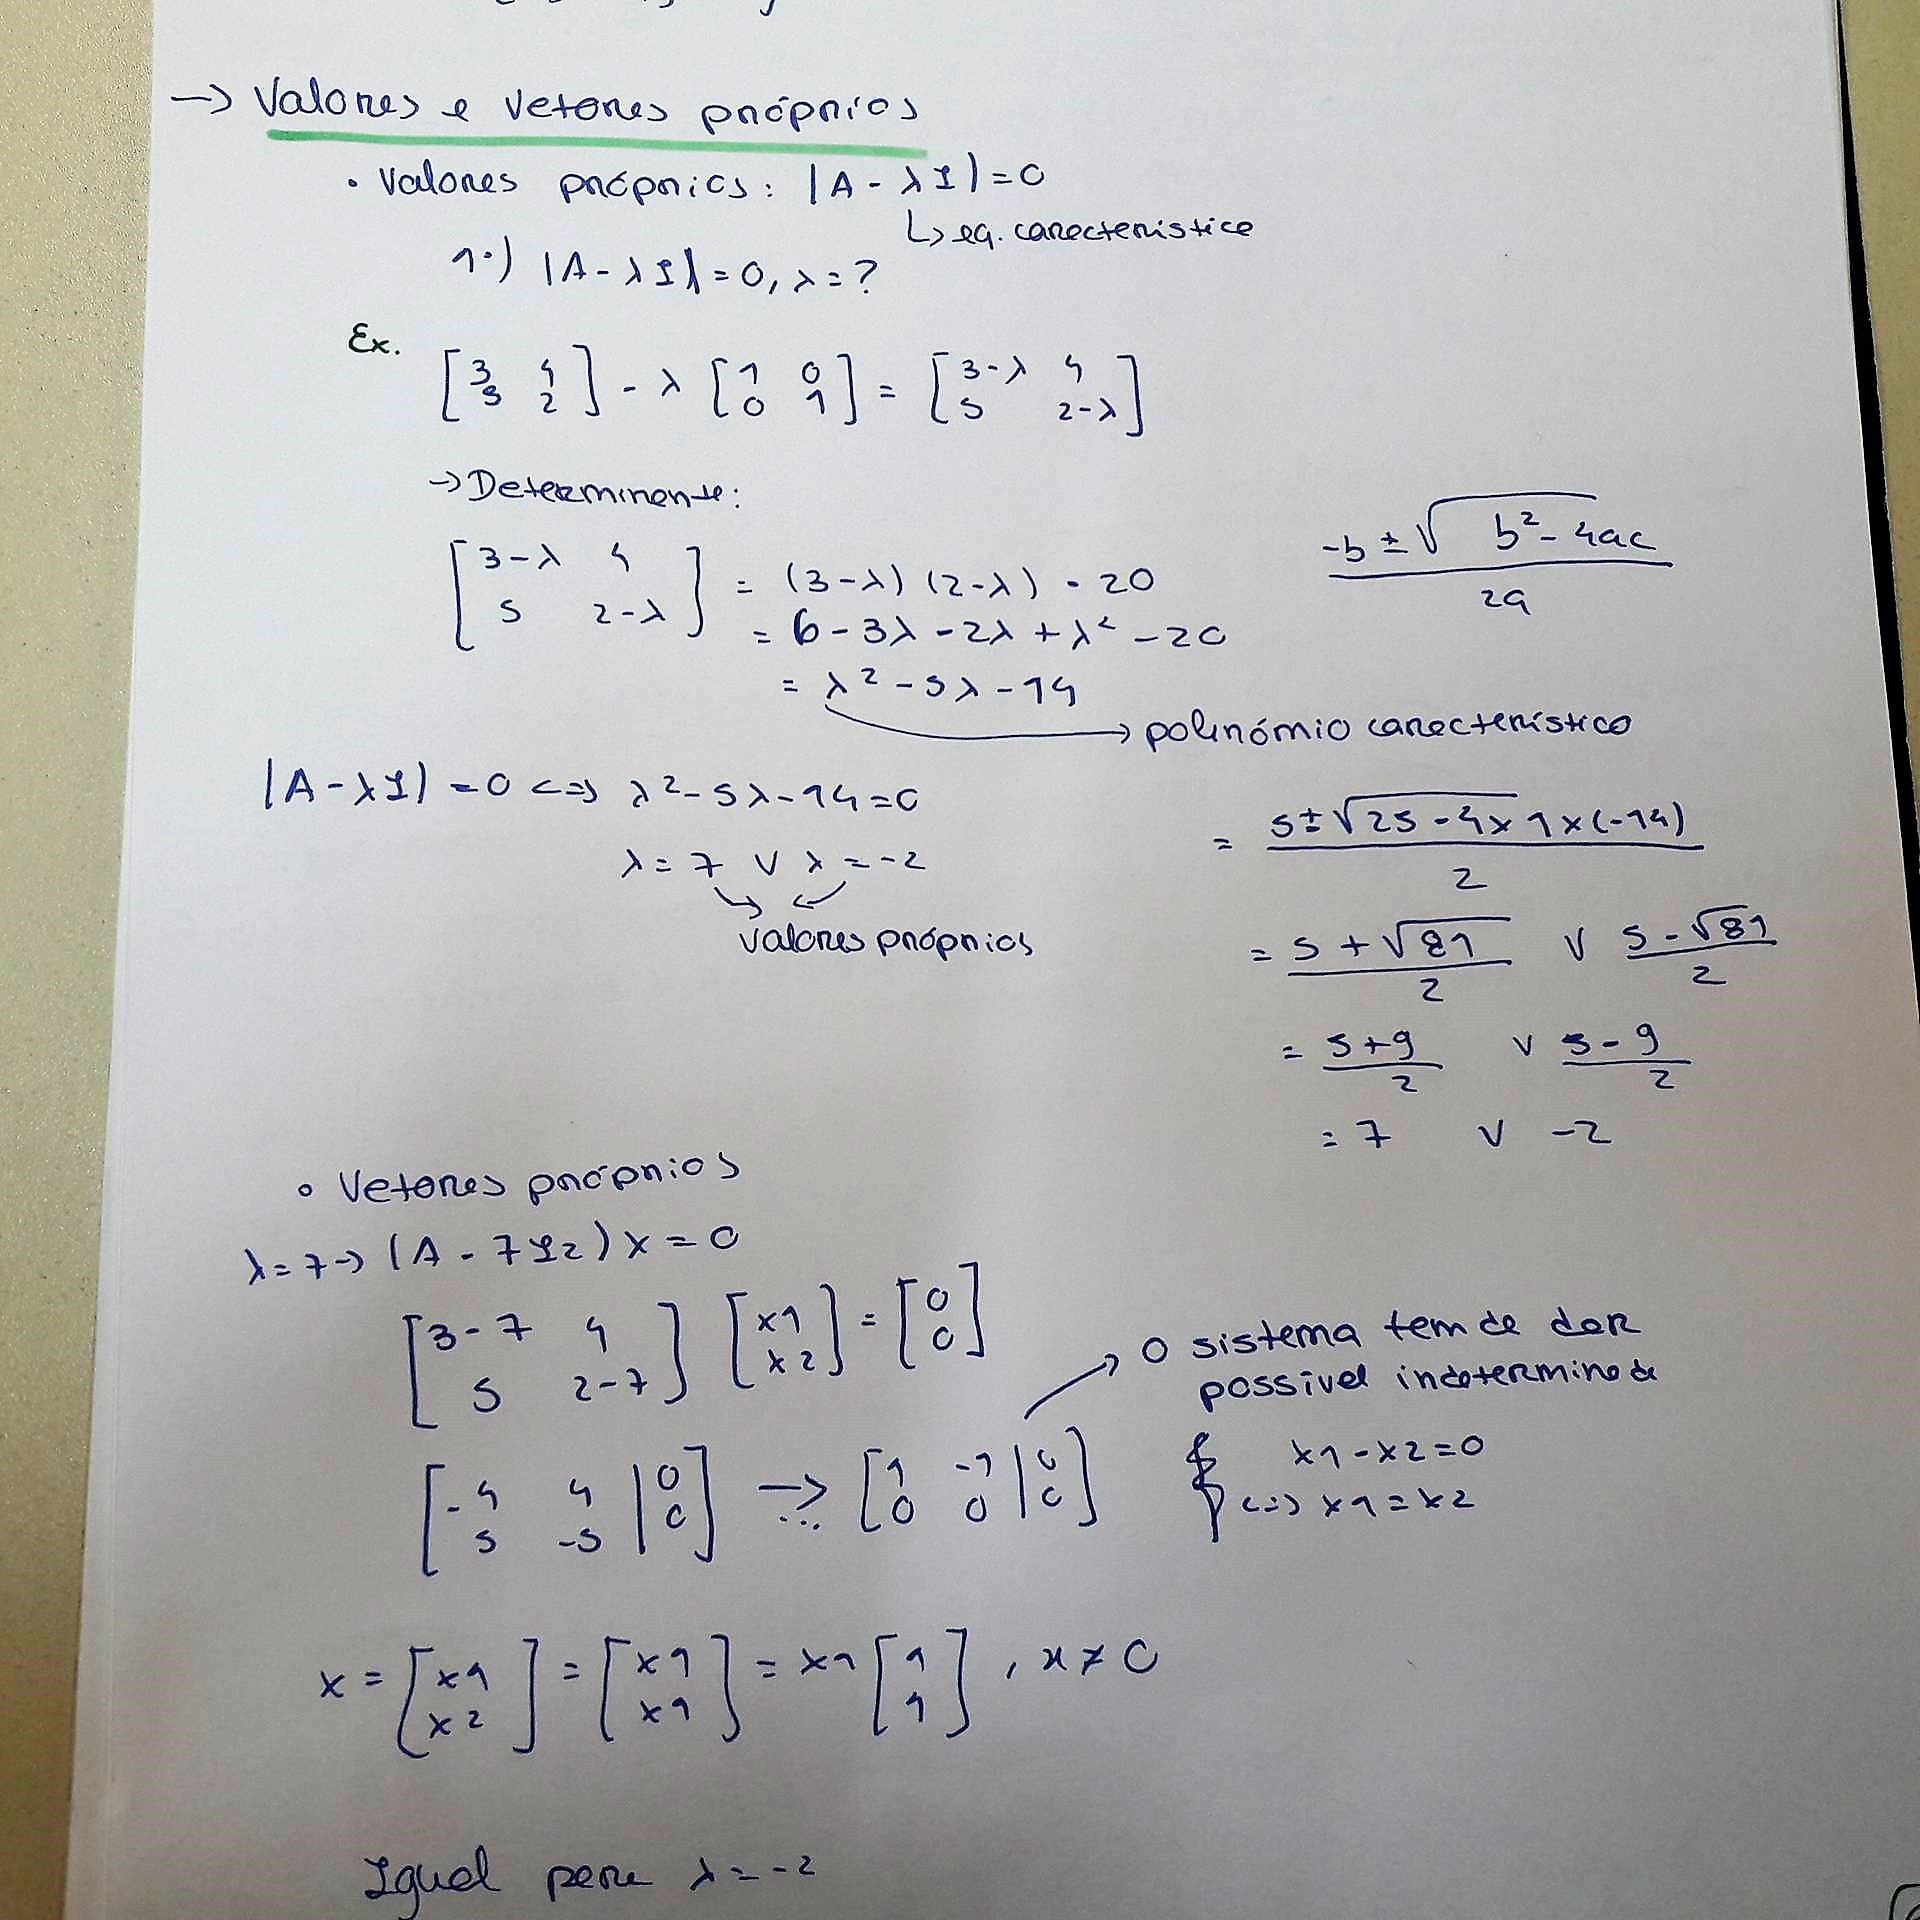 → Valores e vetores próprios
• Valores próprios: |A - λI| = 0
↳ eq. característica
1.) |A - λI| = 0, λ = ?
Ex.
[3 4; 5 2] - λ [1 0; 0 1] = [3-λ 4; 5 2-λ]
→ Determinante:
[3-λ 4; 5 2-λ] = (3-λ)(2-λ) - 20
= 6 - 3λ - 2λ + λ² - 20
= λ² - 5λ - 14
→ polinómio característico
-b ± √b² - 4ac / 2a
|A - λI| = 0 <=> λ² - 5λ - 14 = 0
λ = 7 ∨ λ = -2
valores próprios
= 5 ± √25 - 4x1x(-14) / 2
= 5 + √81 / 2 ∨ 5 - √81 / 2
= 5+9 / 2 ∨ 5-9 / 2
= 7 ∨ -2
• Vetores próprios
λ = 7 → (A - 7I2) x = 0
[3-7 4; 5 2-7] [x1; x2] = [0; 0]
→ O sistema tem de dar
possível indeterminado
[-4 4 | 0; 5 -5 | 0] → ... [1 -1 | 0; 0 0 | 0]
x1 - x2 = 0
<=> x1 = x2
x = [x1; x2] = [x1; x1] = x1 [1; 1], x ≠ 0
Igual para λ = -2